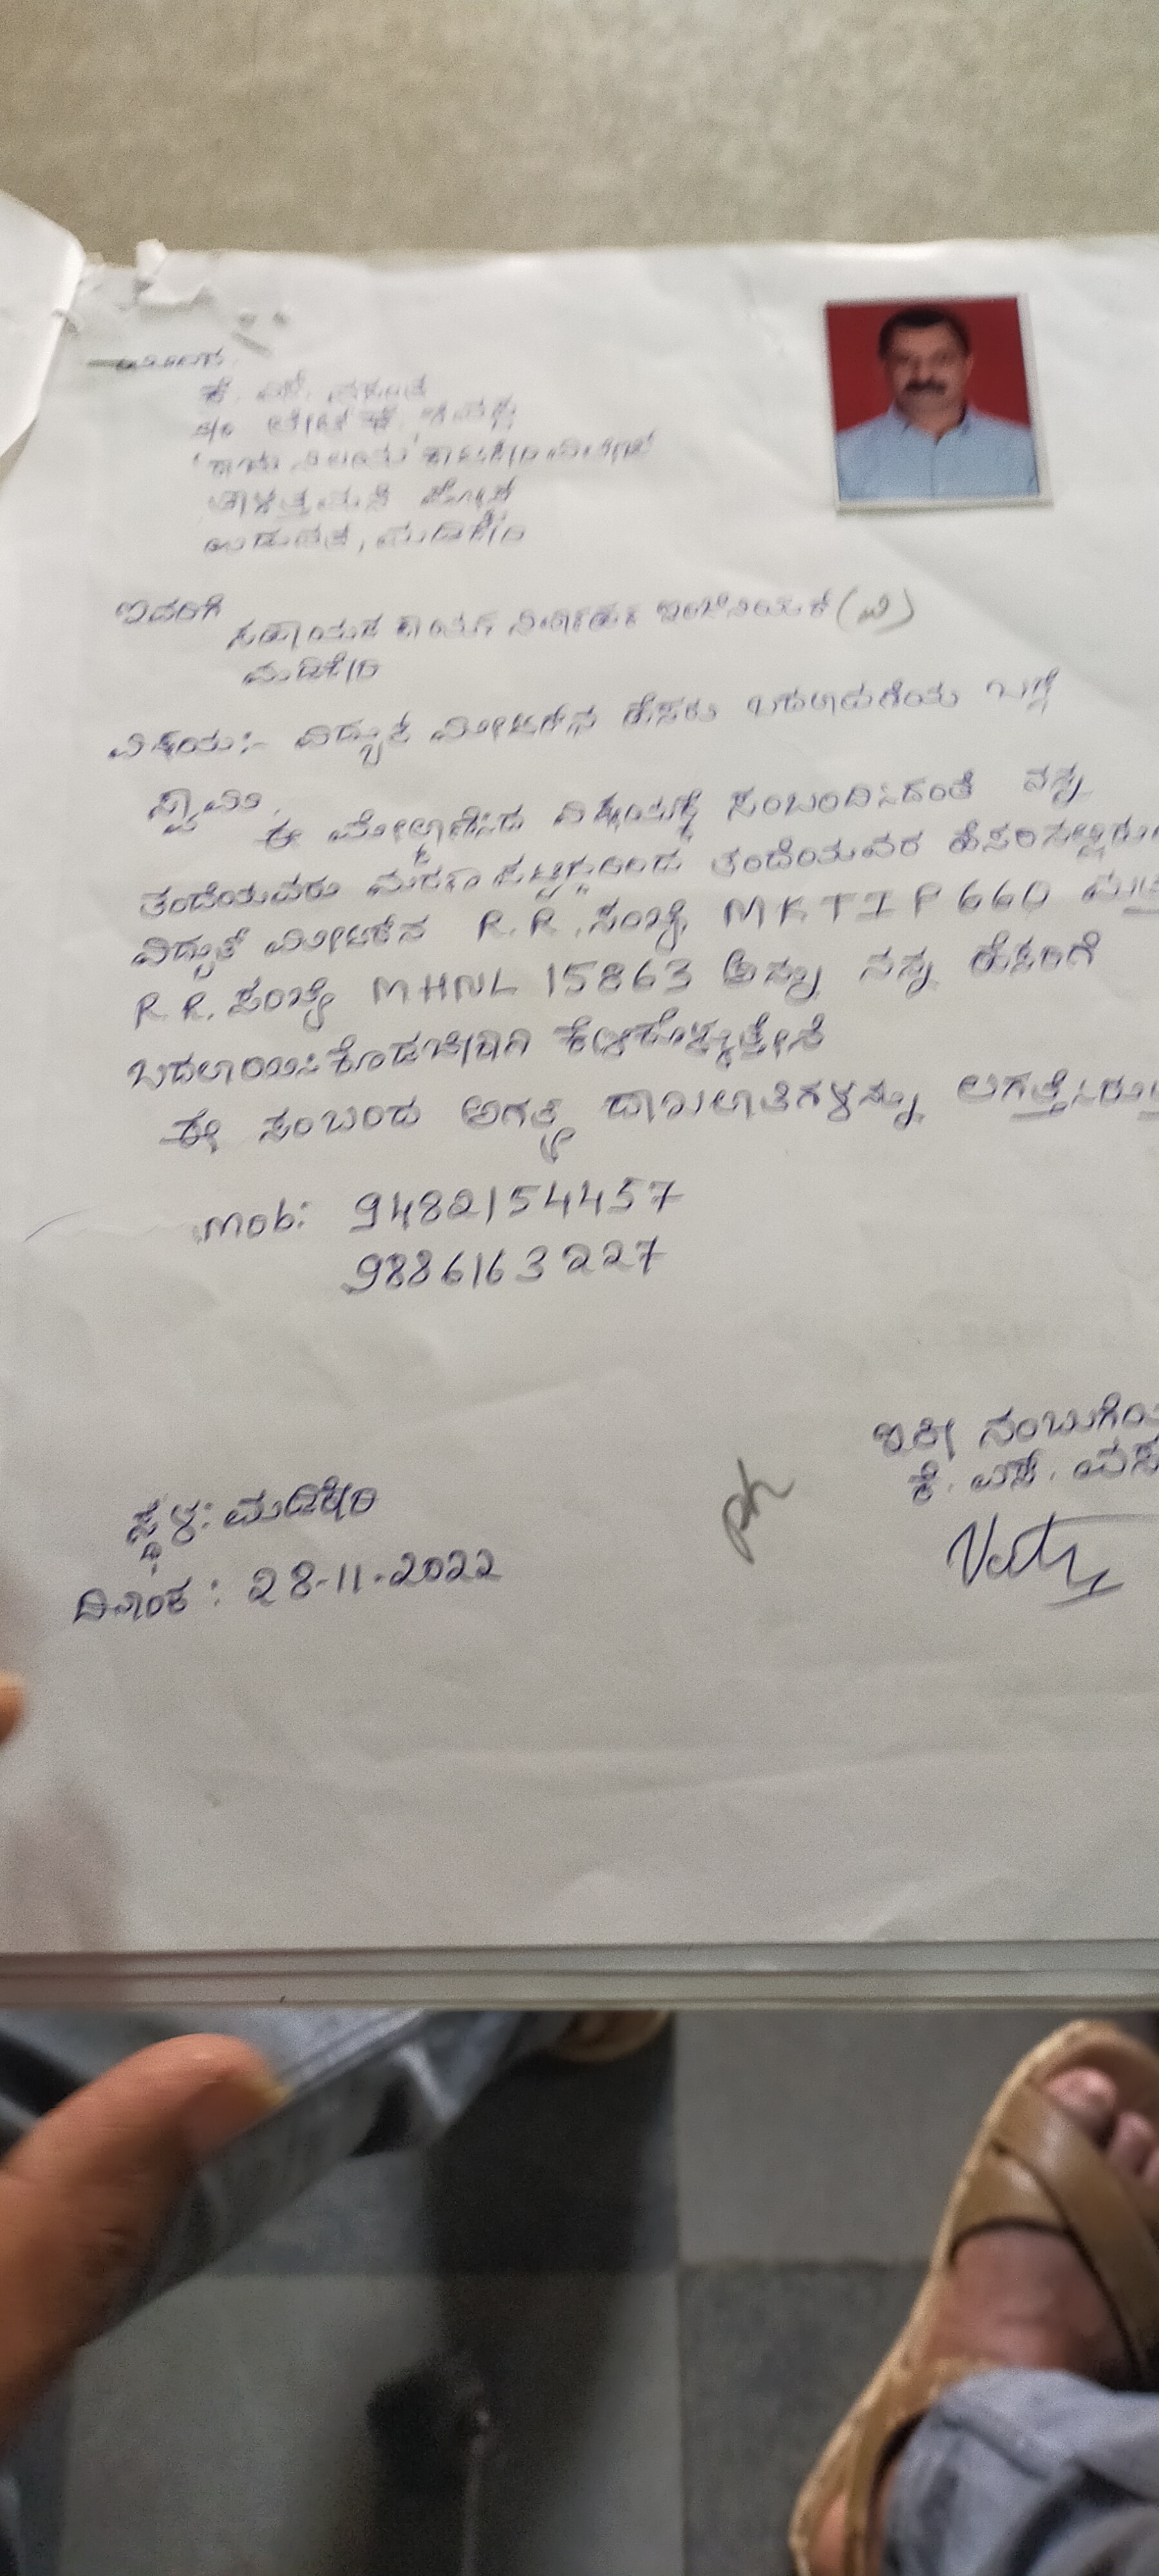 ಕೆ. ಎಸ್. ವಸಂತ
S/o ಲೇಟ್ ಕೆ.
ಮಡಿಕೇರಿ
ಇವರಿಗೆ
ಸಹಾಯಕ ಕಾರ್ಯ ನಿರ್ವಾಹಕ ಇಂಜಿನಿಯರ್ (ವಿ)
ಮಡಿಕೇರಿ
ವಿಷಯ:- ವಿದ್ಯುತ್ ಮೀಟರ್‌ನ ಹೆಸರು ಬದಲಾವಣೆಯ ಬಗ್ಗೆ
ಸ್ವಾಮಿ,
ಈ ಮೇಲ್ಕಾಣಿಸಿದ ವಿಷಯಕ್ಕೆ ಸಂಬಂದಿಸಿದಂತೆ ನನ್ನ
ತಂದೆಯವರು ಮರಣ ತಂದೆಯವರ ಹೆಸರಿನಲ್ಲಿರುವ
ವಿದ್ಯುತ್ ಮೀಟರ್‌ನ R.R. ಸಂಖ್ಯೆ MKTIP 660 ಮತ್ತು
R.R. ಸಂಖ್ಯೆ MHNL 15863 ಅನ್ನು ನನ್ನ ಹೆಸರಿಗೆ
ಬದಲಾಯಿಸಿಕೊಡಬೇಕಾಗಿ ಕೇಳಿಕೊಳ್ಳುತ್ತೇನೆ
ಈ ಸಂಬಂದ ಅಗತ್ಯ ದಾಖಲಾತಿಗಳನ್ನು ಲಗತ್ತಿಸಿರುತ್ತ
Mob: 9482154457
9886163227
ಇತೀ ನಂಬುಗೆಯ
ಕೆ. ಎಸ್. ವಸ
ಸ್ಥಳ: ಮಡಿಕೇರಿ
ದಿನಾಂಕ : 28-11-2022